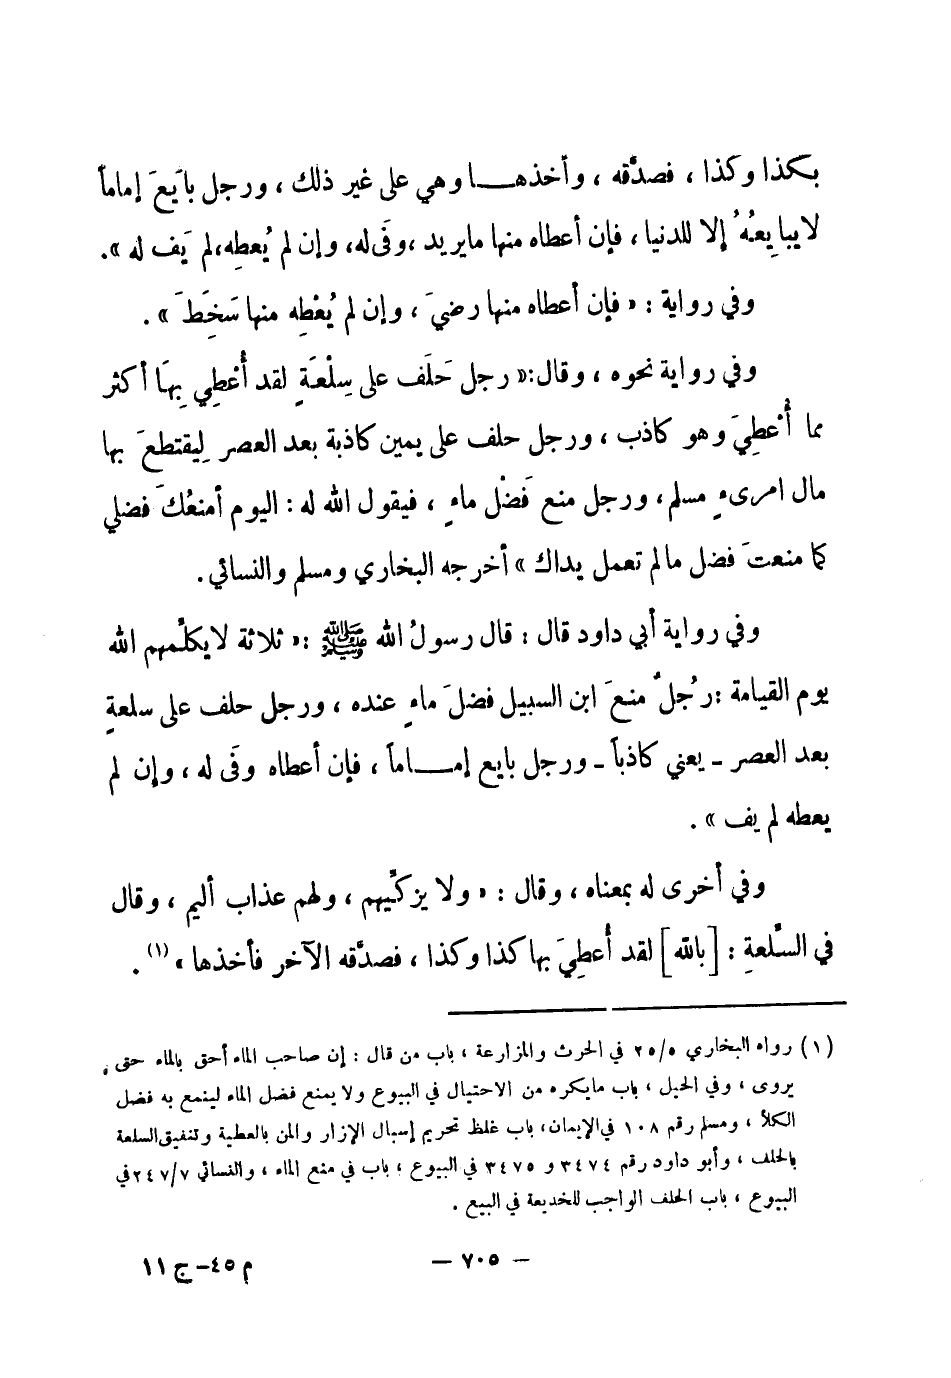 بكذا وكذا ، فصدَّقه ، وأخذهـا وهي على غير ذلك ، ورجل بايَعَ إماماً
لايبايِعُهُ إلا للدنيا ، فإن أعطاه منها مايريد ،وفَى له، وإن لم يُعطِه،لم يَف له ».
وفي رواية : « فإن أعطاه منها رضيَ ، وإن لم يُعْطِه منها سَخِطَ » .
وفي رواية نحوه ، وقال:« رجل حَلَف على سِلْعَةٍ لقد أُعْطِي بِهَا أكثر
مما أُعْطِيَ وهو كاذب ، ورجل حلف على يمين كاذبة بعد العصر لِيقتطعَ بها
مال امرىءٍ مسلم، ورجل منع فَضْل ماءٍ ، فيقول الله له : اليوم أمنعُكَ فضلي
كما منعتَ فضل مالم تعمل يداك » أخرجه البخاري ومسلم والنسائي.
وفي رواية أبي داود قال : قال رسولُ الله ﷺ :« ثلاثة لايكلِّمهم الله
يوم القيامة :رَجُلٌ منعَ ابن السبيل فضلَ ماءٍ عنده ، ورجل حلف على سلعةٍ
بعد العصر ـ يعني كاذباً ـ ورجل بايع إمـاماً ، فإن أعطاه وفَى له ، وإن لم
يعطه لم يف » .
وفي أخرى له بمعناه ، وقال : « ولا يزكِّيهم ، ولهم عذاب أليم ، وقال
في السِّلعةِ : [بالله] لقد أُعطِيَ بها كذا وكذا ، فصدَّقه الآخر فأخذها » (١) .
(١) رواه البخاري ٢٥/٥ في الحرث والمزارعة ، باب من قال : إن صاحب الماء أحق بالماء حتى
يروى ، وفي الحيل ، باب مايكره من الاحتيال في البيوع ولا يمنع فضل الماء ليمنع به فضل
الكلأ ، ومسلم رقم ١٠٨ في الإيمان، باب غلظ تحريم إسبال الإزار والمن بالعطية وتنفيق السلعة
بالحلف ، وأبو داود رقم ٣٤٧٤ و ٣٤٧٥ في البيوع ، باب في منع الماء ، والنسائي ٢٤٧/٧ في
البيوع ، باب الحلف الواجب للخديعة في البيع .
– ٧٠٥ –
م ٤٥–ج ١١